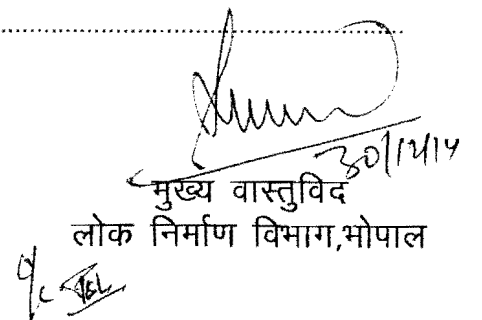 30/12/14
मुख्य वास्तुविद
लोक निर्माण विभाग,भोपाल